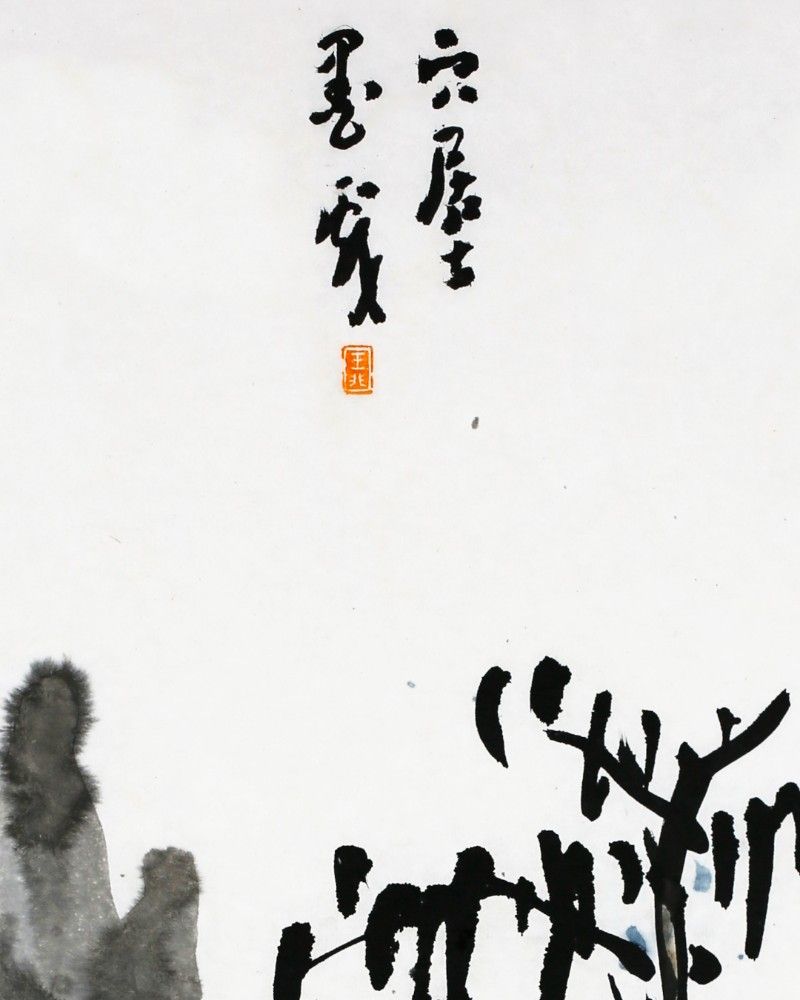 穴居士
墨戲
王兆